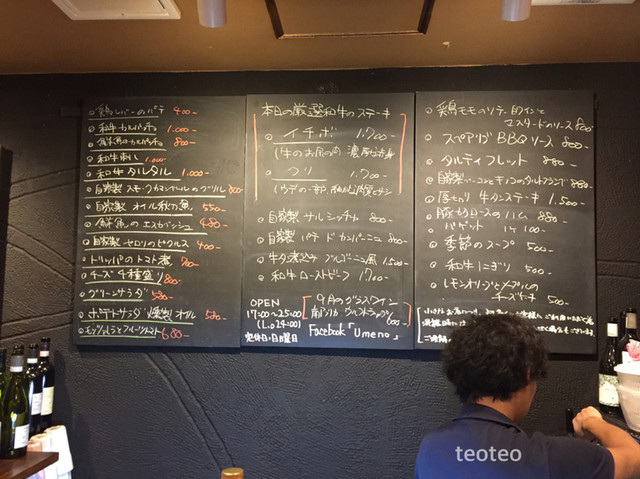 鶏レバーのパテ 400-
和牛カルパッチョ 1.000-
鮮魚のカルパッチョ 800-
和牛刺し 1.000-
和牛タルタル 1.000-
自家製 スモークカマンベールのグリル 800-
自家製 オイル秋刀魚 550-
鮮魚のエスカベッシュ 480-
自家製 セロリのピクルス 400-
トリッパのトマト煮
チーズ4種盛り 800-
グリーンサラダ 580-
ポテトサラダ 燻製オイル 580-
モッツァレラとフルーツトマト 680-
本日の厳選和牛のステーキ
イチボ 1.700-
(牛のお尻の肉
1.700-
自家製 サルシッチャ 800-
自家製 パテドカンパーニュ 800-
牛タ煮込み ブルゴーニュ風 1.500-
和牛ローストビーフ 1.700-
OPEN
17:00〜25:00
(L.o 24:00)
定休日:日曜日
9月のグラスワイン
南アフリカ
600-
Facebook「Umeno」
鶏モモのソテー 白ワインと
マスタードのソース 800-
スペアリブ BBQソース 880-
タルティフレット 880-
自家製ベーコンとキノコのタルトフランベ 880-
厚切り 牛タンステーキ 1.500-
豚肩ロースのハム 880-
バゲット 100-
季節のスープ 500-
和牛にぎり 500-
レモンオリーブとメープルの
チーズケーキ 500-
teoteo